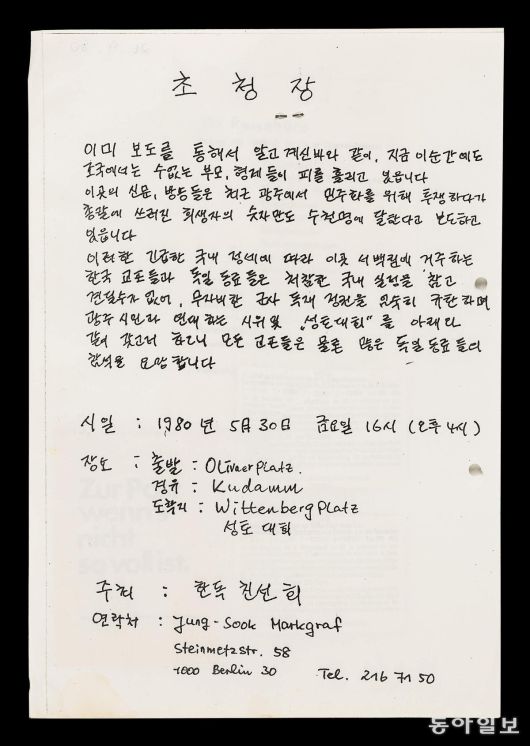 초 청 장
이미 보도를 통해서 알고 계신바와 같이, 지금 이순간에도
조국에서는 수없는 부모, 형제들이 피를 흘리고 있읍니다
이곳의 신문, 방송들은 최근 광주에서 민주화를 위해 투쟁하다가
총칼에 쓰러진 희생자의 숫자만도 수천명에 달한다고 보도하고
있읍니다
이러한 긴급한 국내 정세에 따라 이곳 서백림에 거주하는
한국 교포들과 독일 동료들은 처참한 국내 실정을 참고
견딜수가 없어, 무자비한 군사 독재 정권을 엄숙히 규탄하며
광주 시민과 연대하는 시위 및 "성토대회"를 아래와
같이 갖고저 하오니 모든 교포들은 물론 많은 독일 동료들의
참석을 요망합니다
시일 : 1980 년 5月 30日 금요일 16시 (오후 4시)
장소 : 출발 : Olivaer Platz.
경유 : Kudamm
도착지 : Wittenberg Platz
성토 대회
주최 : 한독 친선 회
연락처 : Jung-Sook Markgraf
Steinmetzstr. 58
1000 Berlin 30 Tel. 216 71 50
Zur Po
wenn
nicht
so voll ist.
동아일보